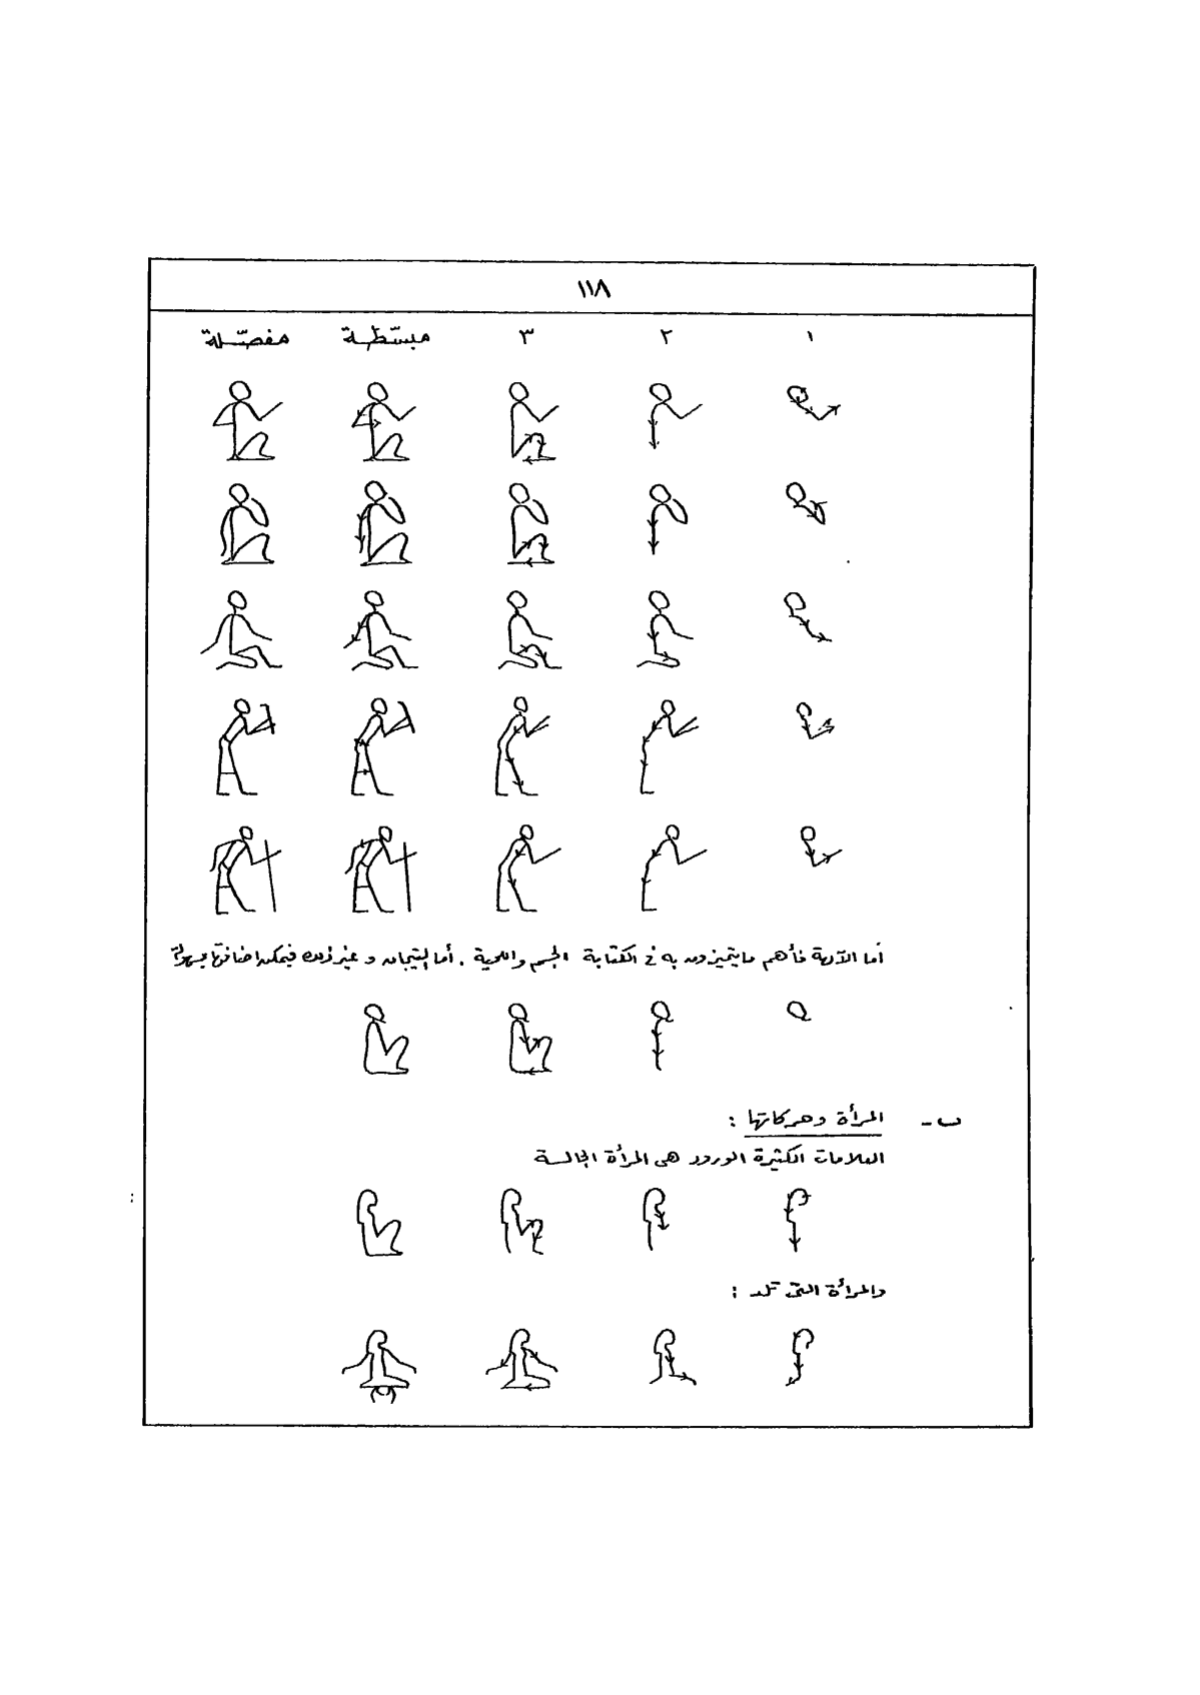 ١١٨
١ ٢ ٣ مبسّطة مفصّلة
أما الآلهة فأهم ما يتميزون به في الكتابة الجسم واللحية . أما التيجان وغير ذلك فيمكن اضافتها بسهولة
ب- المرأة وحركاتها :
العلامات الكثيرة الورود هى المرأة الجالسة
والمرأة التى تلد :